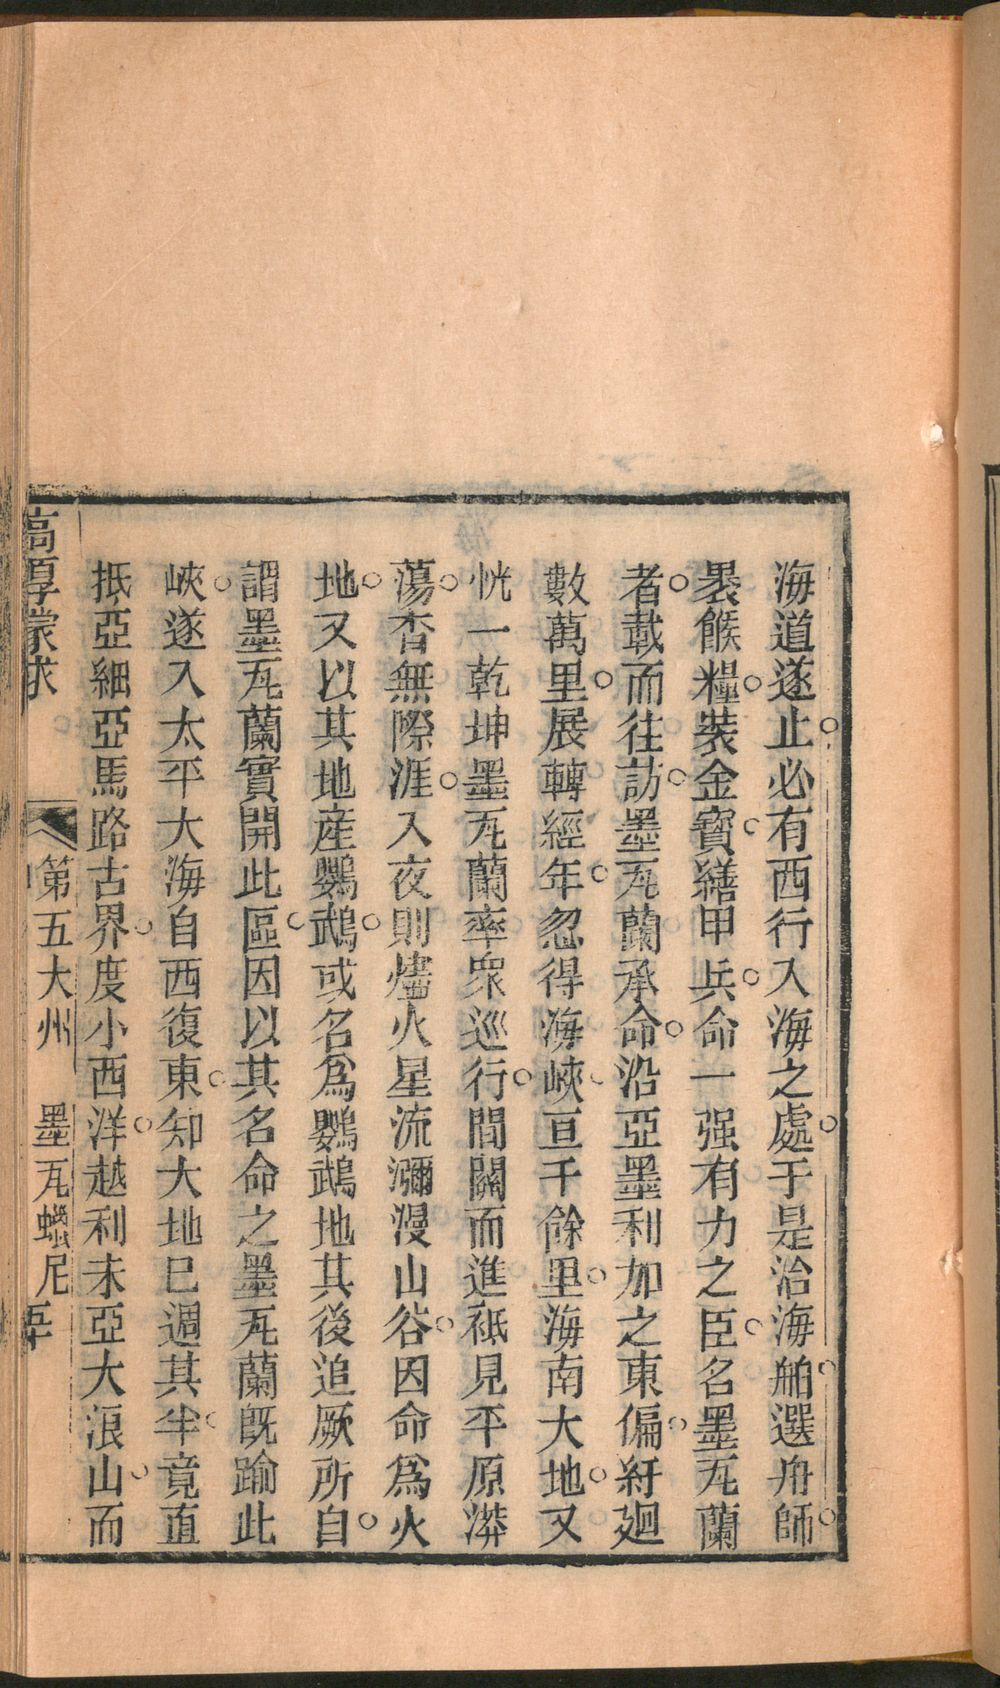 海道遂止必有西行入海之處于是治海舶選舟師
裹餱糧裝金寶繕甲兵命一强有力之臣名墨瓦蘭
者載而往訪墨瓦蘭承命沿亞墨利加之東偏紆廻
數萬里展轉經年忽得海峽亘千餘里海南大地又
恍一乾坤墨瓦蘭率衆巡行間關而進祗見平原漭
蕩杳無際涯入夜則燐火星流瀰漫山谷因命爲火
地又以其地産鸚鵡或名爲鸚鵡地其後追厥所自
謂墨瓦蘭實開此區因以其名命之墨瓦蘭旣踰此
峽遂入太平大海自西復東知大地已週其半竟直
抵亞細亞馬路古界度小西洋越利未亞大浪山而
高厚蒙求 第五大州 墨瓦蠟尼